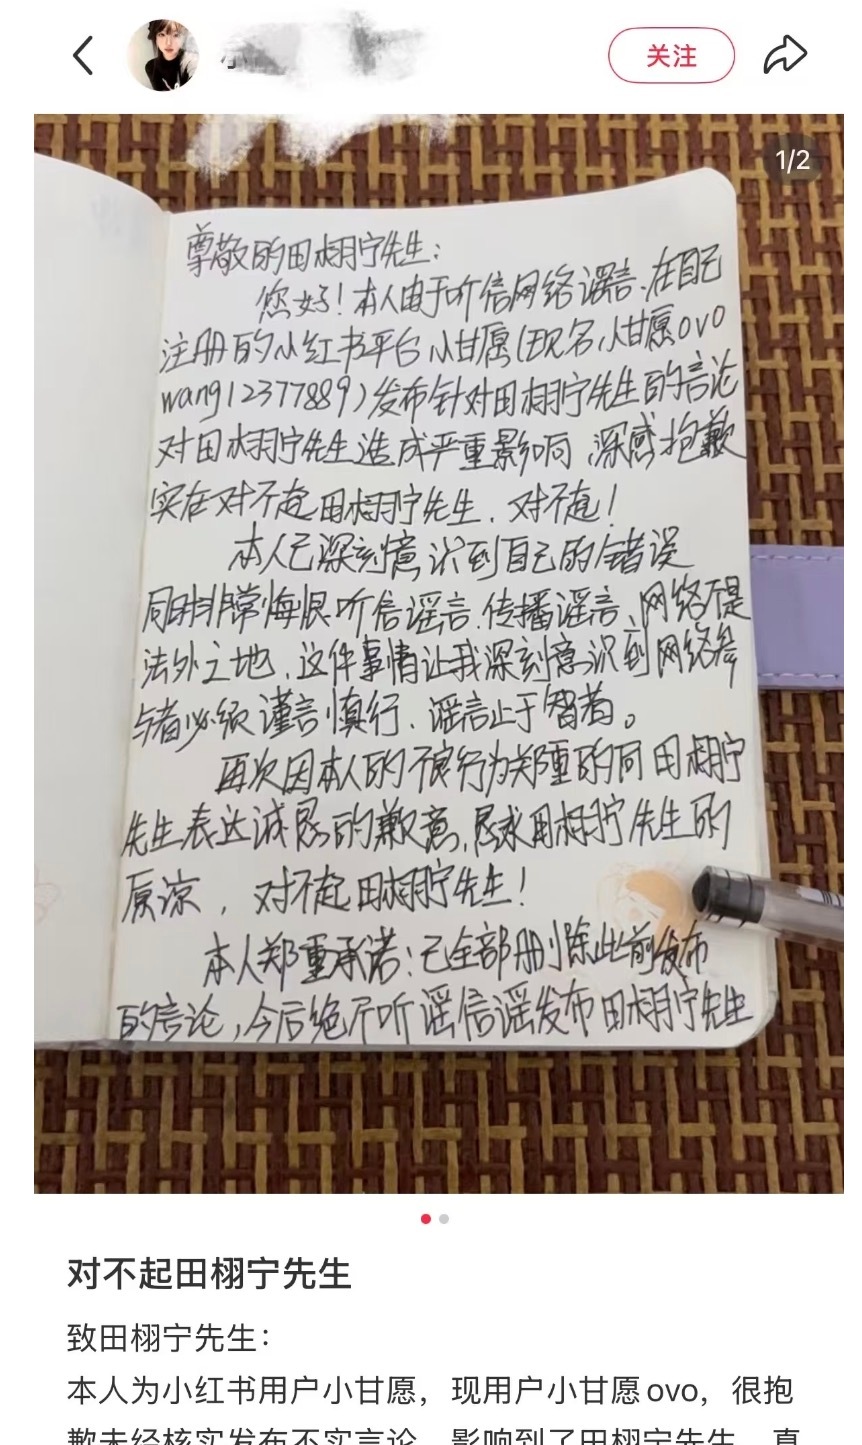 关注
1/2
尊敬的田栩宁先生:
您好!本人由于听信网络谣言、在自己
注册的小红书平台小甘愿(现名小甘愿ovo
wang12377889)发布针对田栩宁先生的言论
对田栩宁先生造成严重影响,深感抱歉
实在对不起田栩宁先生,对不起!
本人已深刻意识到自己的错误
同时非常悔恨听信谣言、传播谣言、网络不是
法外之地,这件事情让我深刻意识到网络参
与者必须谨言慎行、谣言止于智者。
再次因本人的不良行为郑重的向田栩宁
先生表达诚恳的歉意,恳求田栩宁先生的
原谅,对不起田栩宁先生!
本人郑重承诺:已全部删除此前发布
的言论,今后绝不听谣信谣发布田栩宁先生
对不起田栩宁先生
致田栩宁先生:
本人为小红书用户小甘愿,现用户小甘愿ovo,很抱
歉未经核实发布不实言论,影响到了田栩宁先生,真